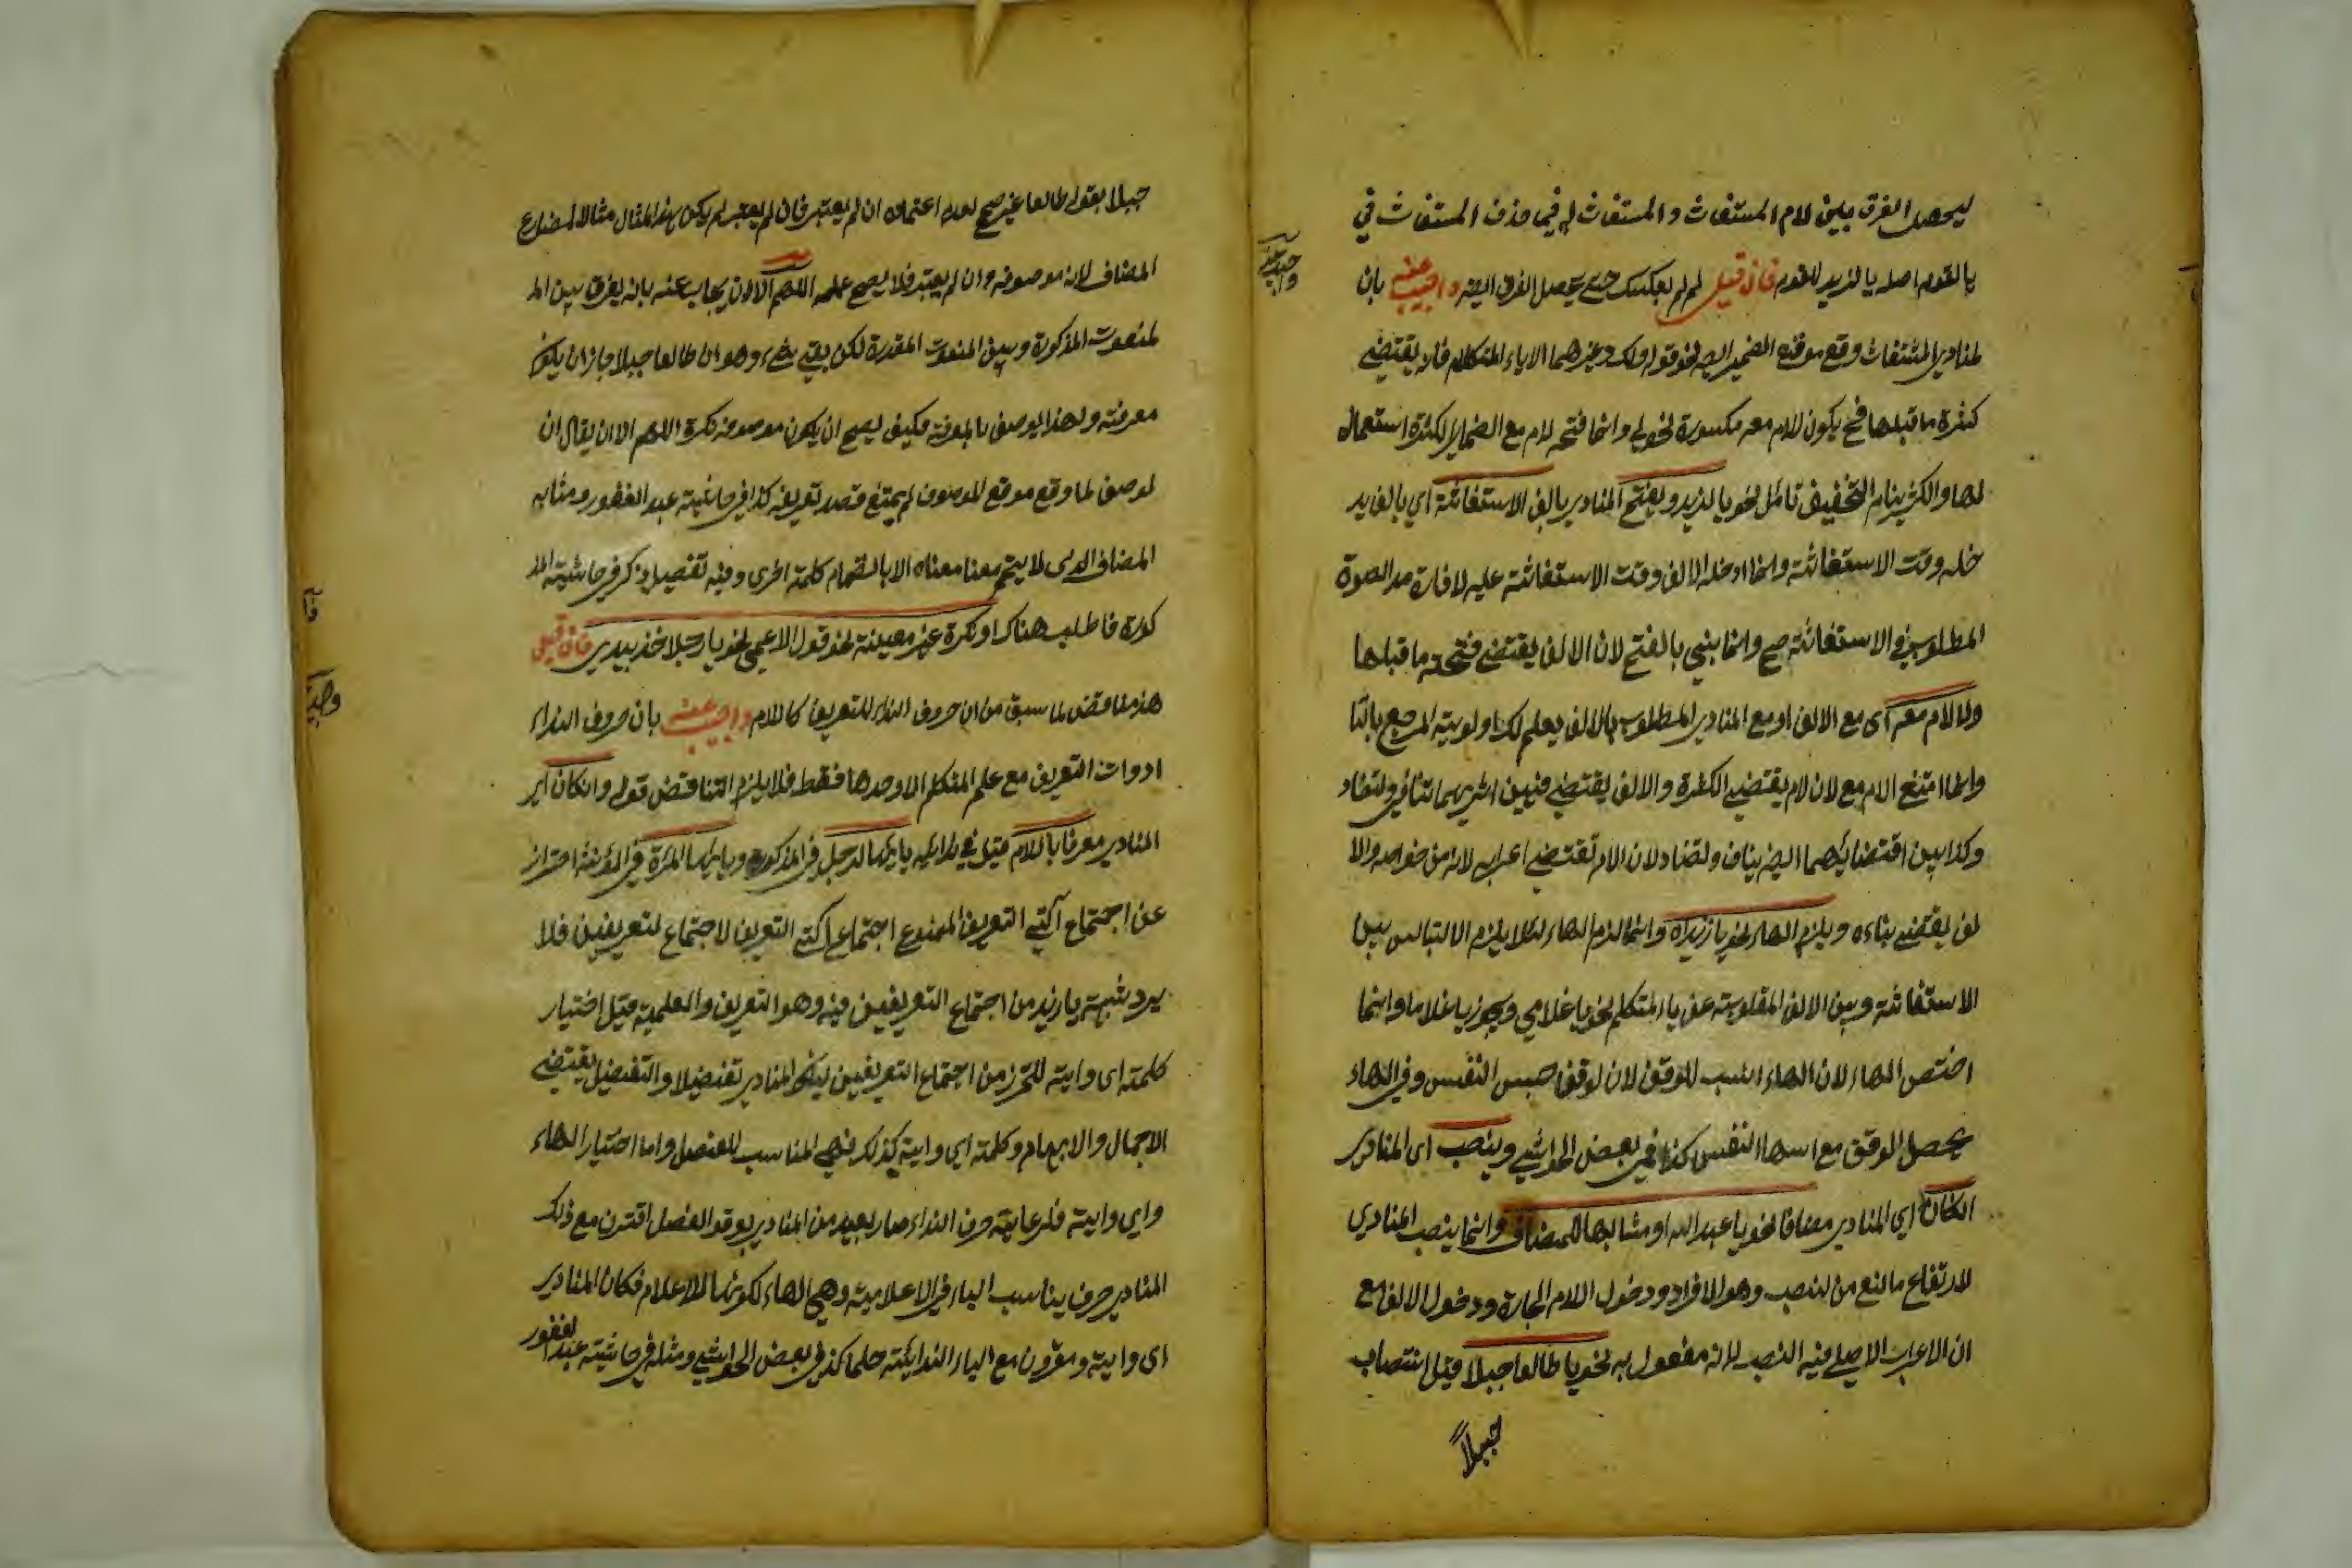 ليحصل الفرق بين لام المستغاث والمستغاث له فيما حذف المستغاث في
يا لقوم اصله يا لزيد لقوم فان قيل لم لم يعكس حتى يحصل الفرق ايضا واجيب عنه بان
لمنادى المستغاث وقع موقع الضمير نحو قوله ولك وغيرهما الا ياء المتكلم فانه يقتضى
كسرة ما قبلها فح يكون اللام معه مكسورة نحو لي وانما فتح لام مع الضمائر لكثرة استعمال
التخفيف تأمل نحو يا لزيد ويفتح المنادى بالف الاستغاثة اي بالف يد
خله وقت الاستغاثة وانما ادخله الالف وقت الاستغاثة عليه لافادة مد الصوة
المطلوب في الاستغاثة صح وانما بني بالفتح لان الالف يقتضى فتحة ما قبلها
ولا لام معه اى مع الالف او مع المنادى المطلوب بالالف يعلم لك اولوية المرجع بالتا
وانما امتنع الام مع لان لام يقتضى الكسرة والالف يقتضى فبين اثريهما تنافي وتضاد
وكذا بين اقتضائيهما ايضا يناف وتضاد لان الام تقتضى اعرابه لانه من خواصه والا
لف يقتضى بناءه ويلزم الهاء نحو يا زيداه وانما لزم الهاء لئلا يلزم الالتباس بين
الاستغاثة وبين الالف المقلوبة عن ياء المتكلم نحو يا غلامي ويجوز يا غلاما وانما
اختص الهاء لان الهاء انسب للوقف لان لوقف حبس النفس وفي الهاء
يحصل الوقف مع النفس كذا في بعض الحواشي وينصب اى المنادى
ان كان اي المنادى مضافا نحو يا عبد الله او مشابها للمضاف وانما ينصب المنادى
لارتفاع مانع من لنصب وهو الافراد ودخول اللام الجارة ودخول الالف مع
ان الاعراب الاصلى فيه النصب لانه مفعول به نحو يا طالعا جبلا قيل انتصاب
جبلاً
واجيب عنه
جبلا بقوله طالعا غير صحيح لعدم اعتماده ان لم يعتبر فان لم يعتبر لم يكن هذا المثال مثالا لمضارع
المضاف لانه موصوفه وان لم يعتبر فلا يصح عمله اللهم الا ان يجاب عنه بانه يفرق بين الم
لمنعوت المذكورة وبين المنعوت المقدرة لكن بقي شيء وهو ان طالعا جبلا جاز ان يكون
معرفة ولهذا يوصف بالمعرفة فكيف يصح ان يكون موصوفه نكرة اللهم الا ان يقال ان
لوصف لما وقع موقع الموصوف لم يمتنع قصد تعريفه كذا في حاشية عبد الغفور ومشابه
المضاف الذى لا يتم معنا معناه الا بانضمام كلمة اخرى وفيه تفصيل ذكر في حاشية المذ
كورة فاطلب هناك او نكرة غير معينة نحو قول الاعمى نحو يا رجلا خذ بيدي فان قيل
هذا مناقض لما سبق من ان حروف النداء للتعريف كاللام واجيب عنه بان حروف النداء
ادوات التعريف مع علم المتكلم لا وحدها فقط فلا يلزم التناقض قوله وان كان اى
المنادى معرفا باللام قيل في ندائه يا ايها الرجل في المذكورة ويا ايتها المرة في المؤنثة احتراز
عن اجتماع آلتي التعريف الممنوع اجتماع آلتي التعريف لا اجتماع لتعريفين فلا
يرد شبهة يا زيد من اجتماع التعريفين فيه وهو التعريف والعلمية قيل اختيار
كلمة اى واية للتحرز من اجتماع التعريفين ليكون المنادى تفضيلا والتفضيل يقتضى
الاجمال والابهام وكلمة اي واية كذلك فهى المناسب للفصل واما اختيار الهاء
واي واية فلرعاية حرف النداء صار بعيد من المنادى بوقوع الفصل اقترن مع ذلك
المنادى حرف يناسب الياء في الاعلامية وهي الهاء لكونها للاعلام فكان المنادى
اى واية ومقرون مع الياء الندائية حكما كذا في بعض الحواشي ومثله في حاشية عبد الغفور